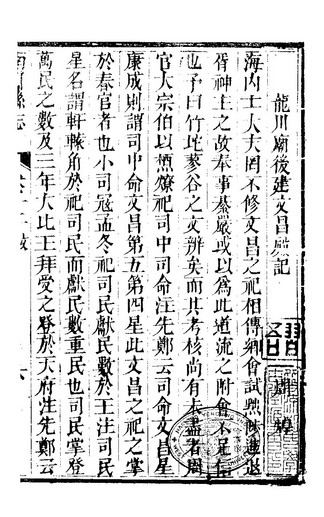 龍川廟後建文昌殿記
胡
海內士大夫罔不修文昌之祀相傳鄉會試興陟進退
胥神主之故奉事綦嚴或以為此道流之附會不足信
也予曰竹垞蓼谷之文辨矣而其考核尚有未盡者周
官大宗伯以槱燎祀司中司命注先鄭云司命文昌星
康成則謂司中司命文昌第五第四星此文昌之祀之掌
於春官者也小司寇孟冬祀司民獻民數於王注司民
星名謂軒轅角於祀司民而獻民數重民也司民掌登
萬民之數及三年大比王拜受之登於天府注先鄭云
縣志
卷
六